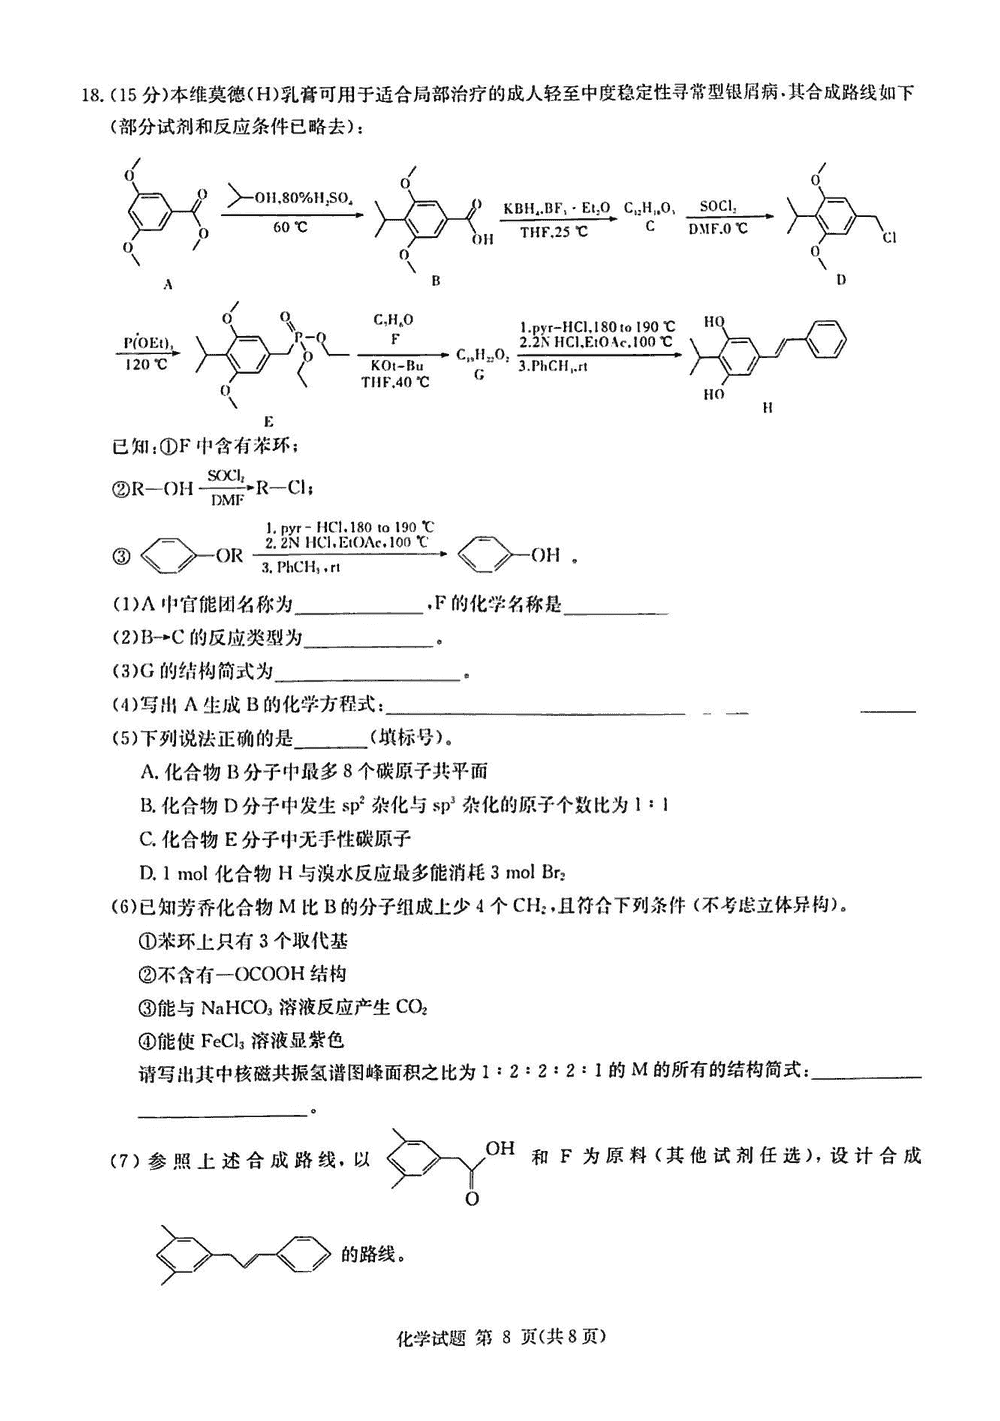 18.(15分)本维莫德(H)乳膏可用于适合局部治疗的成人轻至中度稳定性寻常型银屑病,其合成路线如下
(部分试剂和反应条件已略去):
OH,80%H₂SO₄
60 ℃
KBH₄,BF₃·Et₂O
THF,25 ℃
C₁₂H₁₈O₃
C
SOCl₂
DMF,0 ℃
O
O
O
O
A
O
O
O
OH
B
O
O
Cl
D
P(OEt)₃
120 ℃
O
O
O
P
O
O
E
C₇H₆O
F
KOt-Bu
THF,40 ℃
C₁₉H₂₂O₂
G
1.pyr-HCl,180 to 190 ℃
2.2N HCl,EtOAc,100 ℃
3.PhCH₃,rt
HO
HO
H
已知:①F中含有苯环;
②R—OH SOCl₂ DMF R—Cl;
③ OR 1. pyr-HCl,180 to 190 ℃
2. 2N HCl,EtOAc,100 ℃
3. PhCH₃,rt OH 。
(1)A中官能团名称为____________,F的化学名称是__________
(2)B→C的反应类型为____________。
(3)G的结构简式为__________________。
(4)写出A生成B的化学方程式:______________________________
(5)下列说法正确的是_______(填标号)。
A. 化合物B分子中最多8个碳原子共平面
B. 化合物D分子中发生sp²杂化与sp³杂化的原子个数比为1∶1
C. 化合物E分子中无手性碳原子
D. 1 mol化合物H与溴水反应最多能消耗3 mol Br₂
(6)已知芳香化合物M比B的分子组成上少4个CH₂,且符合下列条件(不考虑立体异构)。
①苯环上只有3个取代基
②不含有—OCOOH结构
③能与NaHCO₃溶液反应产生CO₂
④能使FeCl₃溶液显紫色
请写出其中核磁共振氢谱图峰面积之比为1∶2∶2∶2∶1的M的所有的结构简式:__________
________________。
(7)参照上述合成路线,以 OH O 和F为原料(其他试剂任选),设计合成
的路线。
化学试题 第 8 页(共8页)